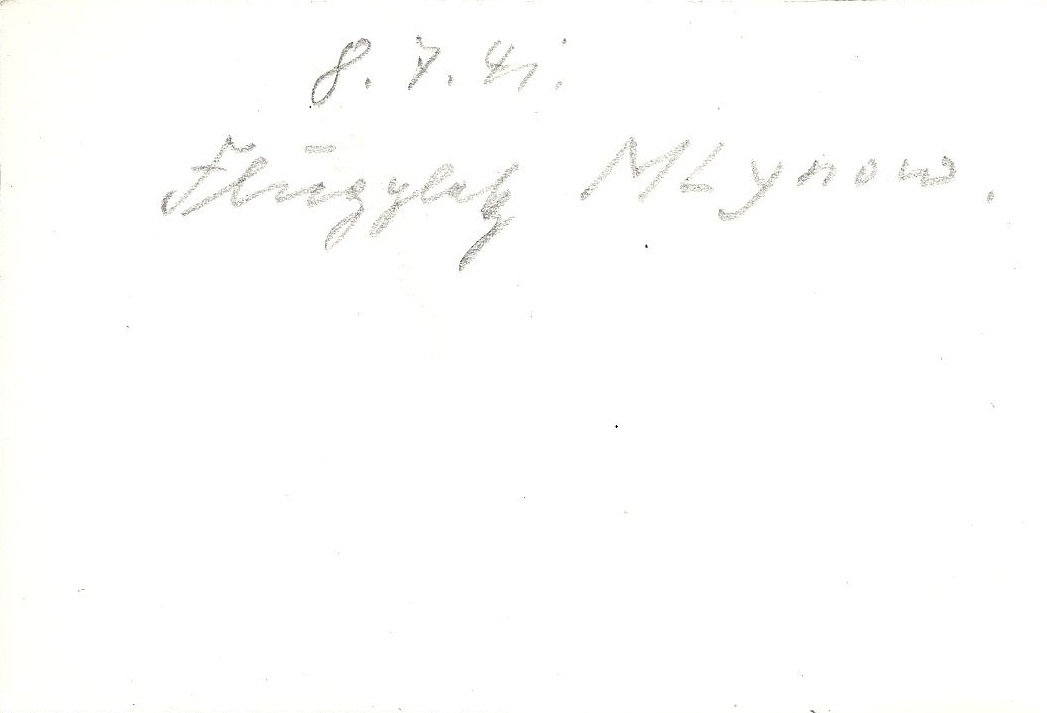 8. 7. 41.
Flugplatz Mlynow.